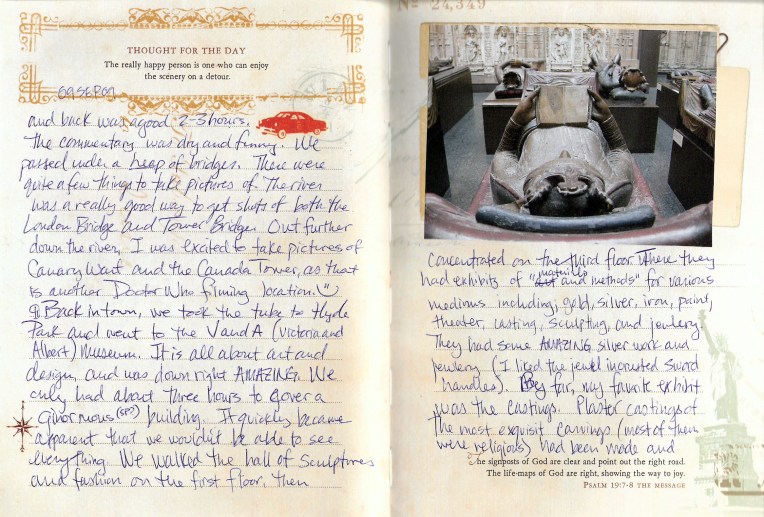 THOUGHT FOR THE DAY
The really happy person is one who can enjoy
the scenery on a detour.
09SEP09
and back was a good 2-3 hours.
The commentary was dry and funny. We
passed under a heap of bridges. There were
quite a few things to take pictures of. The river
was a really good way to get shots of both the
London Bridge and Tower Bridge. Out further
down the river, I was excited to take pictures of
Canary Warf and the Canada Tower, as that
is another Doctor Who filming location.
Back in town, we took the tube to Hyde
Park and went to the V and A (Victoria and
Albert) Museum. It is all about art and
design, and was down right AMAZING. We
only had about three hours to cover a
ginormous (sp?) building. It quickly became
apparent that we wouldn't be able to see
everything. We walked the hall of sculptures
and fashion on the first floor, then
No 24,349
concentrated on the third floor. There they
had exhibits of "materials and methods" for various
mediums including, gold, silver, iron, paint,
theater, casting, sculpting, and jewlery.
They had some AMAZING silver work and
jewlery (I liked the jewel incrusted sword
handles). By far, my favorite exhibit
was the castings. Plaster castings of
the most exquisit carvings (most of them
were religious) had been made and
he signposts of God are clear and point out the right road.
The life-maps of God are right, showing the way to joy.
PSALM 19:7-8 THE MESSAGE